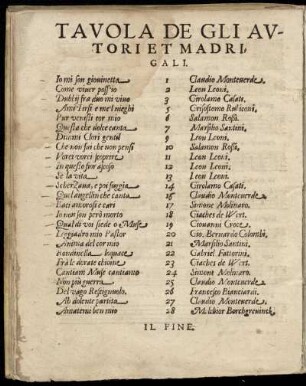 TAVOLA DE GLI AV-
TORI ET MADRI,
GALI.
Io mi son giouinetta 1 Claudio Monteuerde
Come viuer poss'io 2 Leon Leoni,
Dubij fra duo mi viuo 3 Girolamo Casati,
Ami Tirsi e me'l nieghi 5
Pur venisti cor mio 6 Salamon Rossi.
Questa che dolce canta 7 Marsilio Santini,
Dimmi Clori gentil 9 Leon Leoni,
Che non fai che non pensi 10 Salamon Rossi,
Vorrei 11 Leon Leoni,
In questo 12 Leon Leoni,
Se la vita 13 Leon Leoni.
Scherzaua, e poi fuggia 14 Girolamo Casati,
Quel augellin che canta 15 Claudio Monteuerde
Baci amorosi e cari 17 Simone Molinaro,
Io non son però morto 18 Giaches de Wert.
Qual di voi siede o Muse 19 Giouanni Croce
Leggiadro mio Pastor 20 Gio. Bernardo Colombi,
Anima del cor mio 21 Marsilio Santini,
22 Gabriel Fattorini,
Frà le dorate chiome 23 Giaches de Wert.
Cantiam Muse cantianto 24 Simone Molinaro.
Non più guerra 25 Claudio Monteuerde
Del vago 26 Francesco Bianciardi,
Ah dolente partita 27 Claudio Monteuerde
Amatemi ben mio 28 Melchior Borchgreuinck
IL FINE.